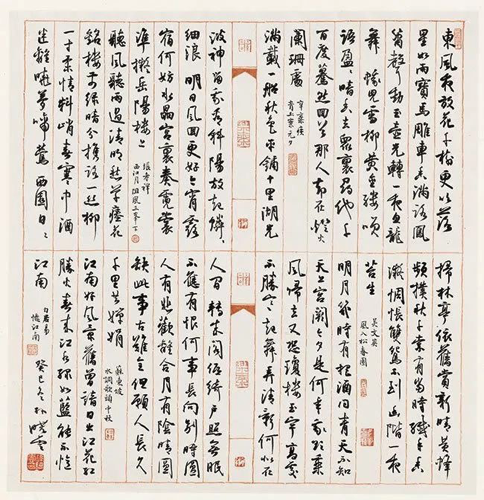 東風夜放花千樹更吹落
星如雨寶馬雕車香滿路鳳
簫聲動玉壺光轉一夜魚龍
舞蛾兒雪柳黃金縷笑
語盈盈暗香去眾裏尋他千
百度驀然回首那人卻在燈火
闌珊處
辛棄疾
青玉案元夕
滿載一船秋色平鋪十里湖光
波神留我看斜陽放起鱗鱗
細浪明日風回更好今宵露
宿何妨水晶宮裏奏霓裳
準擬岳陽樓上
張孝祥
西江月阻風三峰下
聽風聽雨過清明愁草瘞花
銘樓前綠暗分攜路一絲柳
一寸柔情料峭春寒中酒
迷離曉夢啼鶯西園日日
掃林亭依舊賞新晴黃蜂
頻撲秋千索有當時纖手香
凝惆悵雙鴛不到幽階一夜
苔生
吳文英
風入松春園
明月幾時有把酒問青天不知
天上宮闕今夕是何年我欲乘
風歸去又恐瓊樓玉宇高處
不勝寒起舞弄清影何似在
人間轉朱閣低綺戶照無眠
不應有恨何事長向別時圓
人有悲歡離合月有陰晴圓
缺此事古難全但願人長久
千里共嬋娟
蘇東坡
水調歌頭中秋
江南好風景舊曾諳日出江花紅
勝火春來江水綠如藍能不憶
江南
白居易
憶江南
癸巳冬林